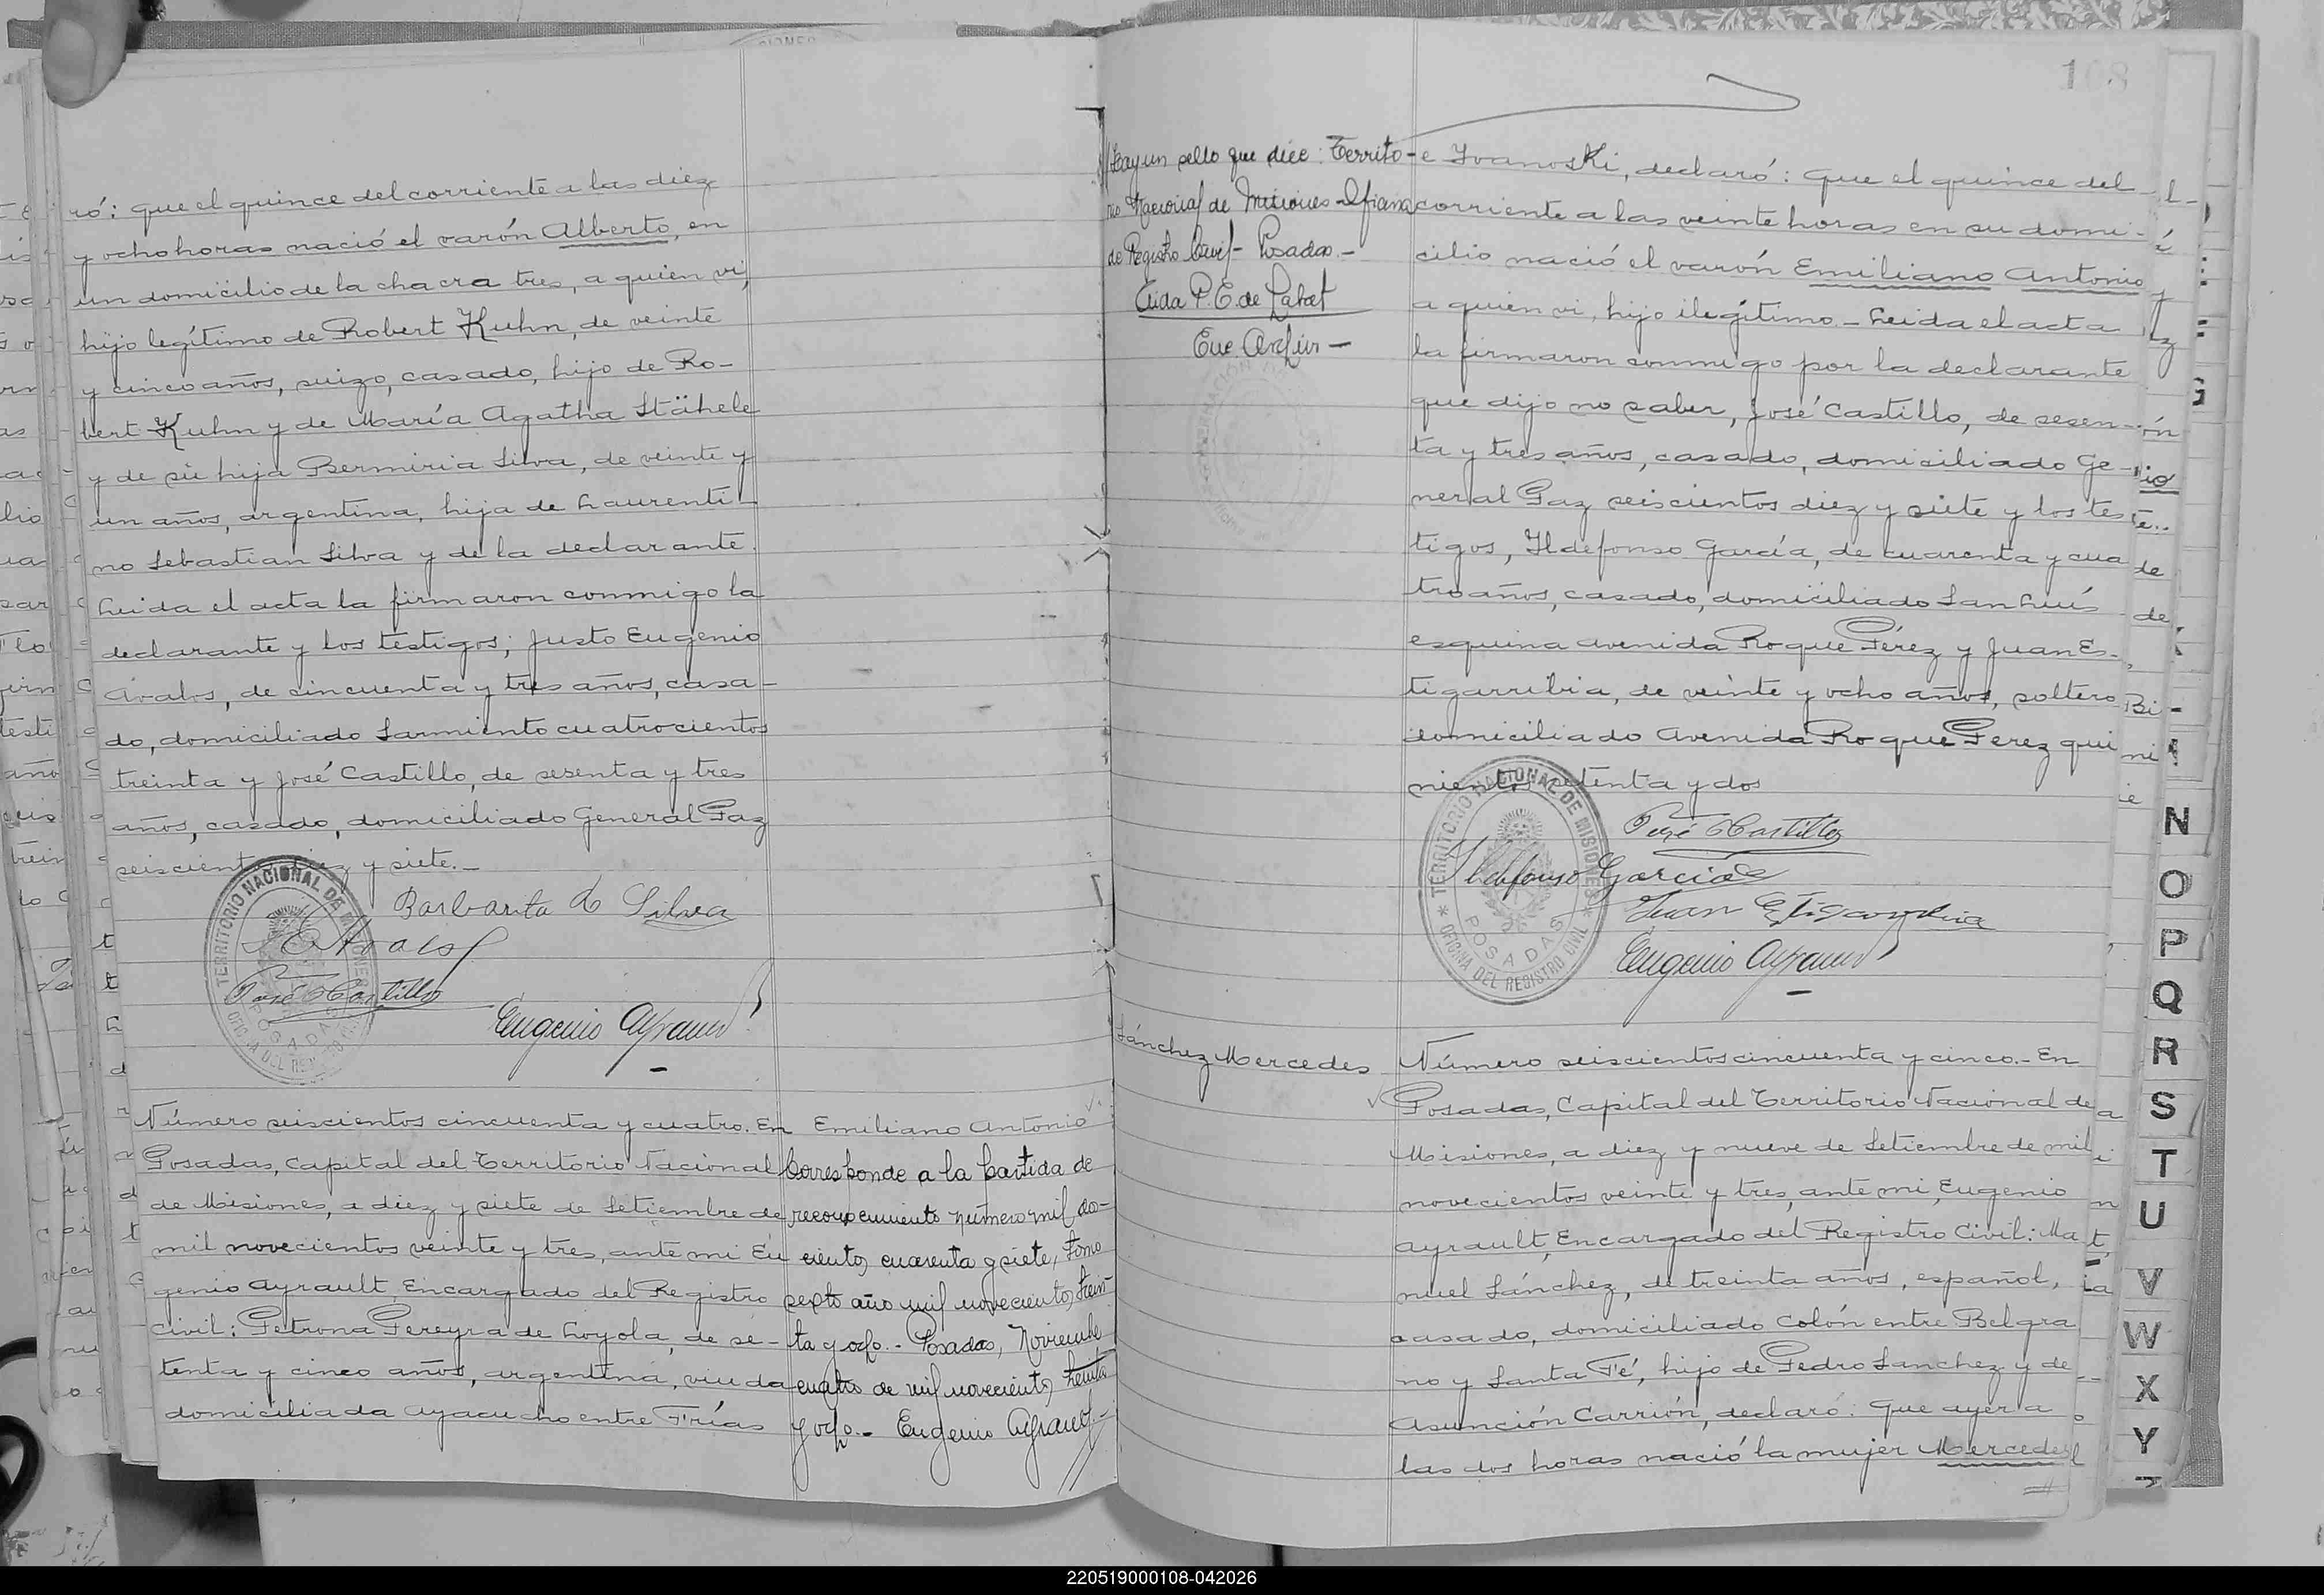 ró: que el quince del corriente a las diez
y ocho horas nació el varón Alberto, en
un domicilio de la chacra tres, a quien vi,
hijo legítimo de Robert Kuhn, de veinte
y cinco años, suizo, casado, hijo de Ro-
bert Kuhn y de María Agatha Stähele
y de su hija Bermiria Silva, de veinte y
un años, argentina, hija de Laurenti-
no Sebastian Silva y de la declarante.
Leida el acta la firmaron conmigo la
declarante y los testigos; Justo Eugenio
Avalos, de cincuenta y tres años, casa-
do, domiciliado Sarmiento cuatrocientos
treinta y José Castillo, de sesenta y tres
años, casado, domiciliado General Paz
seiscientos diez y siete.-
Barbarita de Silva
José Castillo
Eugenio Ayrault
TERRITORIO NACIONAL DE MISIONES
POSADAS
OFICINA DEL REGISTRO CIVIL
Número seiscientos cincuenta y cuatro. En
Posadas, Capital del Territorio Nacional
de Misiones, a diez y siete de Setiembre de
mil novecientos veinte y tres, ante mi Eu
genio Ayrault, Encargado del Registro
Civil: Petrona Pereyra de Loyola, de se-
tenta y cinco años, argentina, viuda
domiciliada Ayacucho entre Frías
Emiliano Antonio
Corresponde a la partida de
reconocimiento número mil do-
cientos cuarenta y siete, tomo
sexto año mil novecientos trein-
ta y ocho.- Posadas, Noviembre
cuatro de mil novecientos treinta
y ocho.- Eugenio Ayrault.-
108
Hay un sello que dice: Territo-
rio Nacional de Misiones-Oficina
de Registro Civil- Posadas.-
Enc. Archivo-
e Ivanoski, declaró: que el quince del
corriente a las veinte horas en su domi-
cilio nació el varón Emiliano Antonio
a quien vi, hijo ilegítimo.- Leida el acta
la firmaron conmigo por la declarante
que dijo no saber, José Castillo, de sesen-
ta y tres años, casado, domiciliado Ge-
neral Paz seiscientos diez y siete y los tes
tigos, Ildefonso García, de cuarenta y cua
tro años, casado, domiciliado San Luis
esquina avenida Roque Pérez y Juan Es-
tigarribia, de veinte y ocho años, soltero
domiciliado Avenida Roque Perez qui
nientos setenta y dos
José Castillo
Ildefonso García
Juan Estigarribia
Eugenio Ayrault
TERRITORIO NACIONAL DE MISIONES
POSADAS
OFICINA DEL REGISTRO CIVIL
Sánchez Mercedes
Número seiscientos cincuenta y cinco.- En
Posadas, Capital del Territorio Nacional de
Misiones, a diez y nueve de Setiembre de mil
novecientos veinte y tres, ante mi, Eugenio
Ayrault, Encargado del Registro Civil: Ma
nuel Sánchez, de treinta años, español,
casado, domiciliado Colón entre Belgra
no y Santa Fé, hijo de Pedro Sanchez y de
Asunción Carrión, declaró: Que ayer a
las dos horas nació la mujer Mercedes
N
O
P
Q
R
S
T
U
V
W
X
Y
Z
220519000108-042026